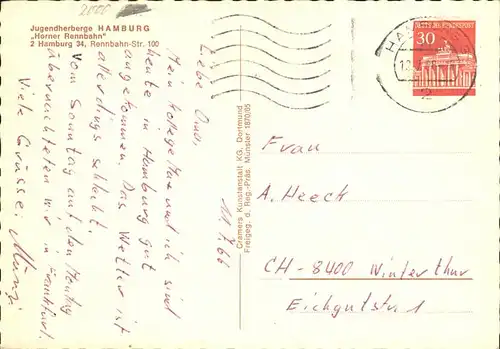 2800
Jugendherberge HAMBURG
„Horner Rennbahn"
2 Hamburg 34, Rennbahn-Str. 100
Liebe Oma,
Mein Kollege und ich sind
heute in Hamburg gut
angekommen. Das Wetter ist
allerdings schlecht.
Vom Sonntag auf den Montag
übernachteten wir in Frankfurt.
Viele Grüsse:
11.7.66
Cramers Kunstanstalt KG, Dortmund
Freigeg. d. Reg.-Präs. Münster 1870/65
DEUTSCHE BUNDESPOST
30
HA
12
2
Frau
A. Heeck
CH-8400 Winterthur
Eichgutstr. 1